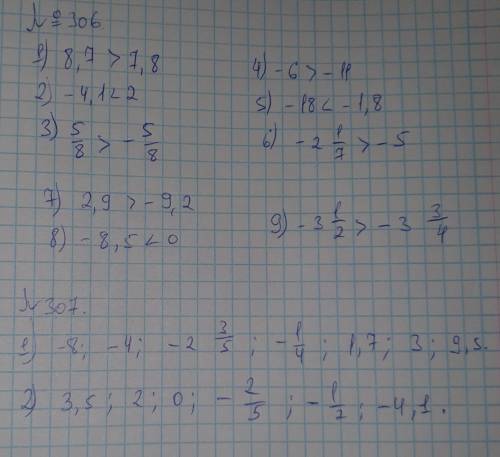 № 306
1) 8,7 > 7,8
2) -4,1 < 2
3) 5/8 > -5/8
4) -6 > -11
5) -18 < -1,8
6) -2 1/7 > -5
7) 2,9 > -9,2
8) -8,5 < 0
9) -3 1/2 > -3 3/4
№ 307.
1) -8; -4; -2 3/5; -1/4; 1,7; 3; 9,5.
2) 3,5; 2; 0; -2/5; -1/7; -4,1.